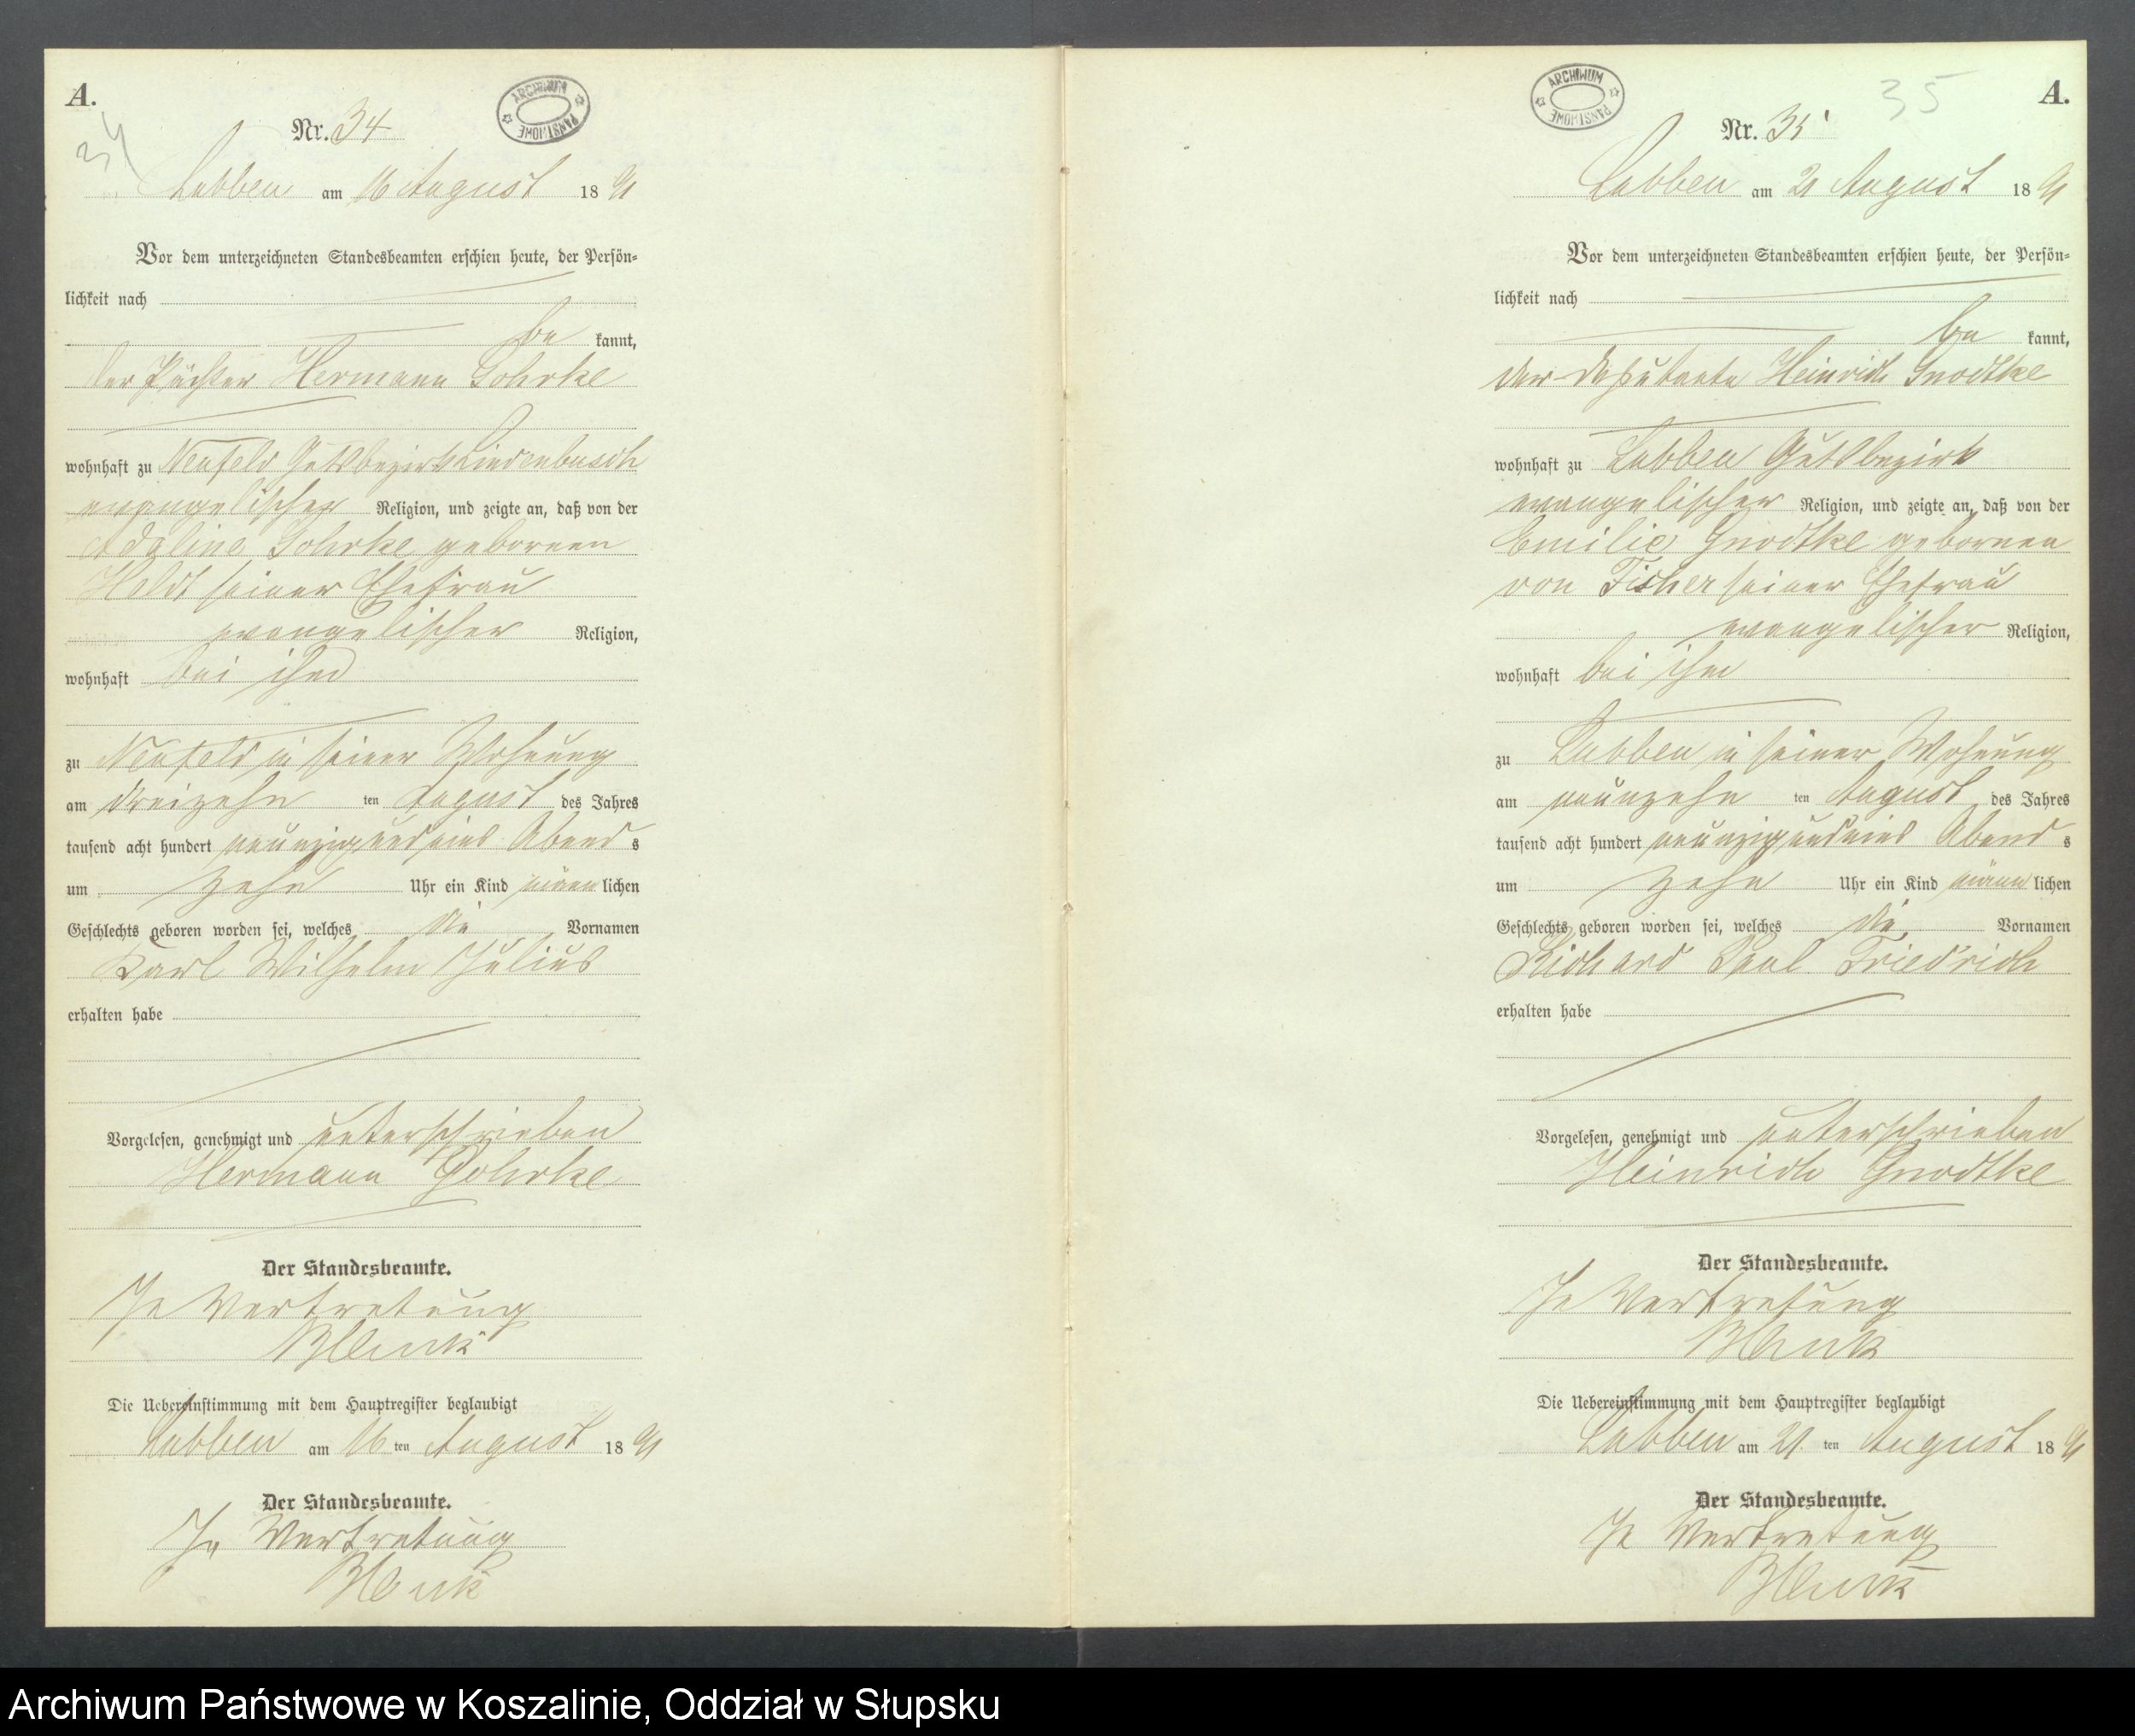 A.
34
Nr. 34
ARCHIWUM PAŃSTWOWE
Labben am 16 August 18 91
Vor dem unterzeichneten Standesbeamten erschien heute, der Persön=
lichkeit nach
be kannt,
der Pächter Hermann Gohrke
wohnhaft zu Neufeld Gutsbezirk Lindenbusch
evangelischer Religion, und zeigte an, daß von der
Adeline Gohrke geborenen
Heldt seiner Ehefrau
evangelischer Religion,
wohnhaft bei ihm
zu Neufeld in seiner Wohnung
am dreizehn ten August des Jahres
tausend acht hundert neunzig und eins Abend s
um zehn Uhr ein Kind männ lichen
Geschlechts geboren worden sei, welches die Vornamen
Karl Wilhelm Julius
erhalten habe
Vorgelesen, genehmigt und unterschrieben
Hermann Gohrke
Der Standesbeamte.
In Vertretung
Blenk
Die Uebereinstimmung mit dem Hauptregister beglaubigt
Labben am 16 ten August 18 91
Der Standesbeamte.
In Vertretung
Blenk
A.
35
Nr. 35
ARCHIWUM PAŃSTWOWE
Labben am 21 August 18 91
Vor dem unterzeichneten Standesbeamten erschien heute, der Persön=
lichkeit nach
be kannt,
der Deputante Heinrich Gnodtke
wohnhaft zu Labben Gutsbezirk
evangelischer Religion, und zeigte an, daß von der
Emilie Gnodtke gebornen
von Fisher seiner Ehefrau
evangelischer Religion,
wohnhaft bei ihm
zu Labben in seiner Wohnung
am neunzehn ten August des Jahres
tausend acht hundert neunzig und eins Abend s
um zehn Uhr ein Kind männ lichen
Geschlechts geboren worden sei, welches die Vornamen
Richard Paul Friedrich
erhalten habe
Vorgelesen, genehmigt und unterschrieben
Heinrich Gnodtke
Der Standesbeamte.
In Vertretung
Blenk
Die Uebereinstimmung mit dem Hauptregister beglaubigt
Labben am 21. ten August 18 91
Der Standesbeamte.
In Vertretung
Blenk
Archiwum Państwowe w Koszalinie, Oddział w Słupsku